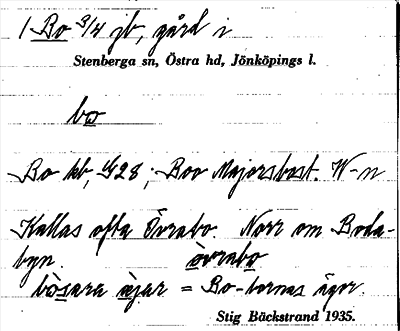 1 Bo 3/4 jb, gård i
Stenberga sn, Östra hd, Jönköpings l.
bo
Bo kb, G28; Boo Majorsbost. W-n
Kallas ofta Övrabo. Norr om Boda-
byn. òvrabo
bòsara àjar = Bo-bornas ägor.
Stig Bäckstrand 1935.